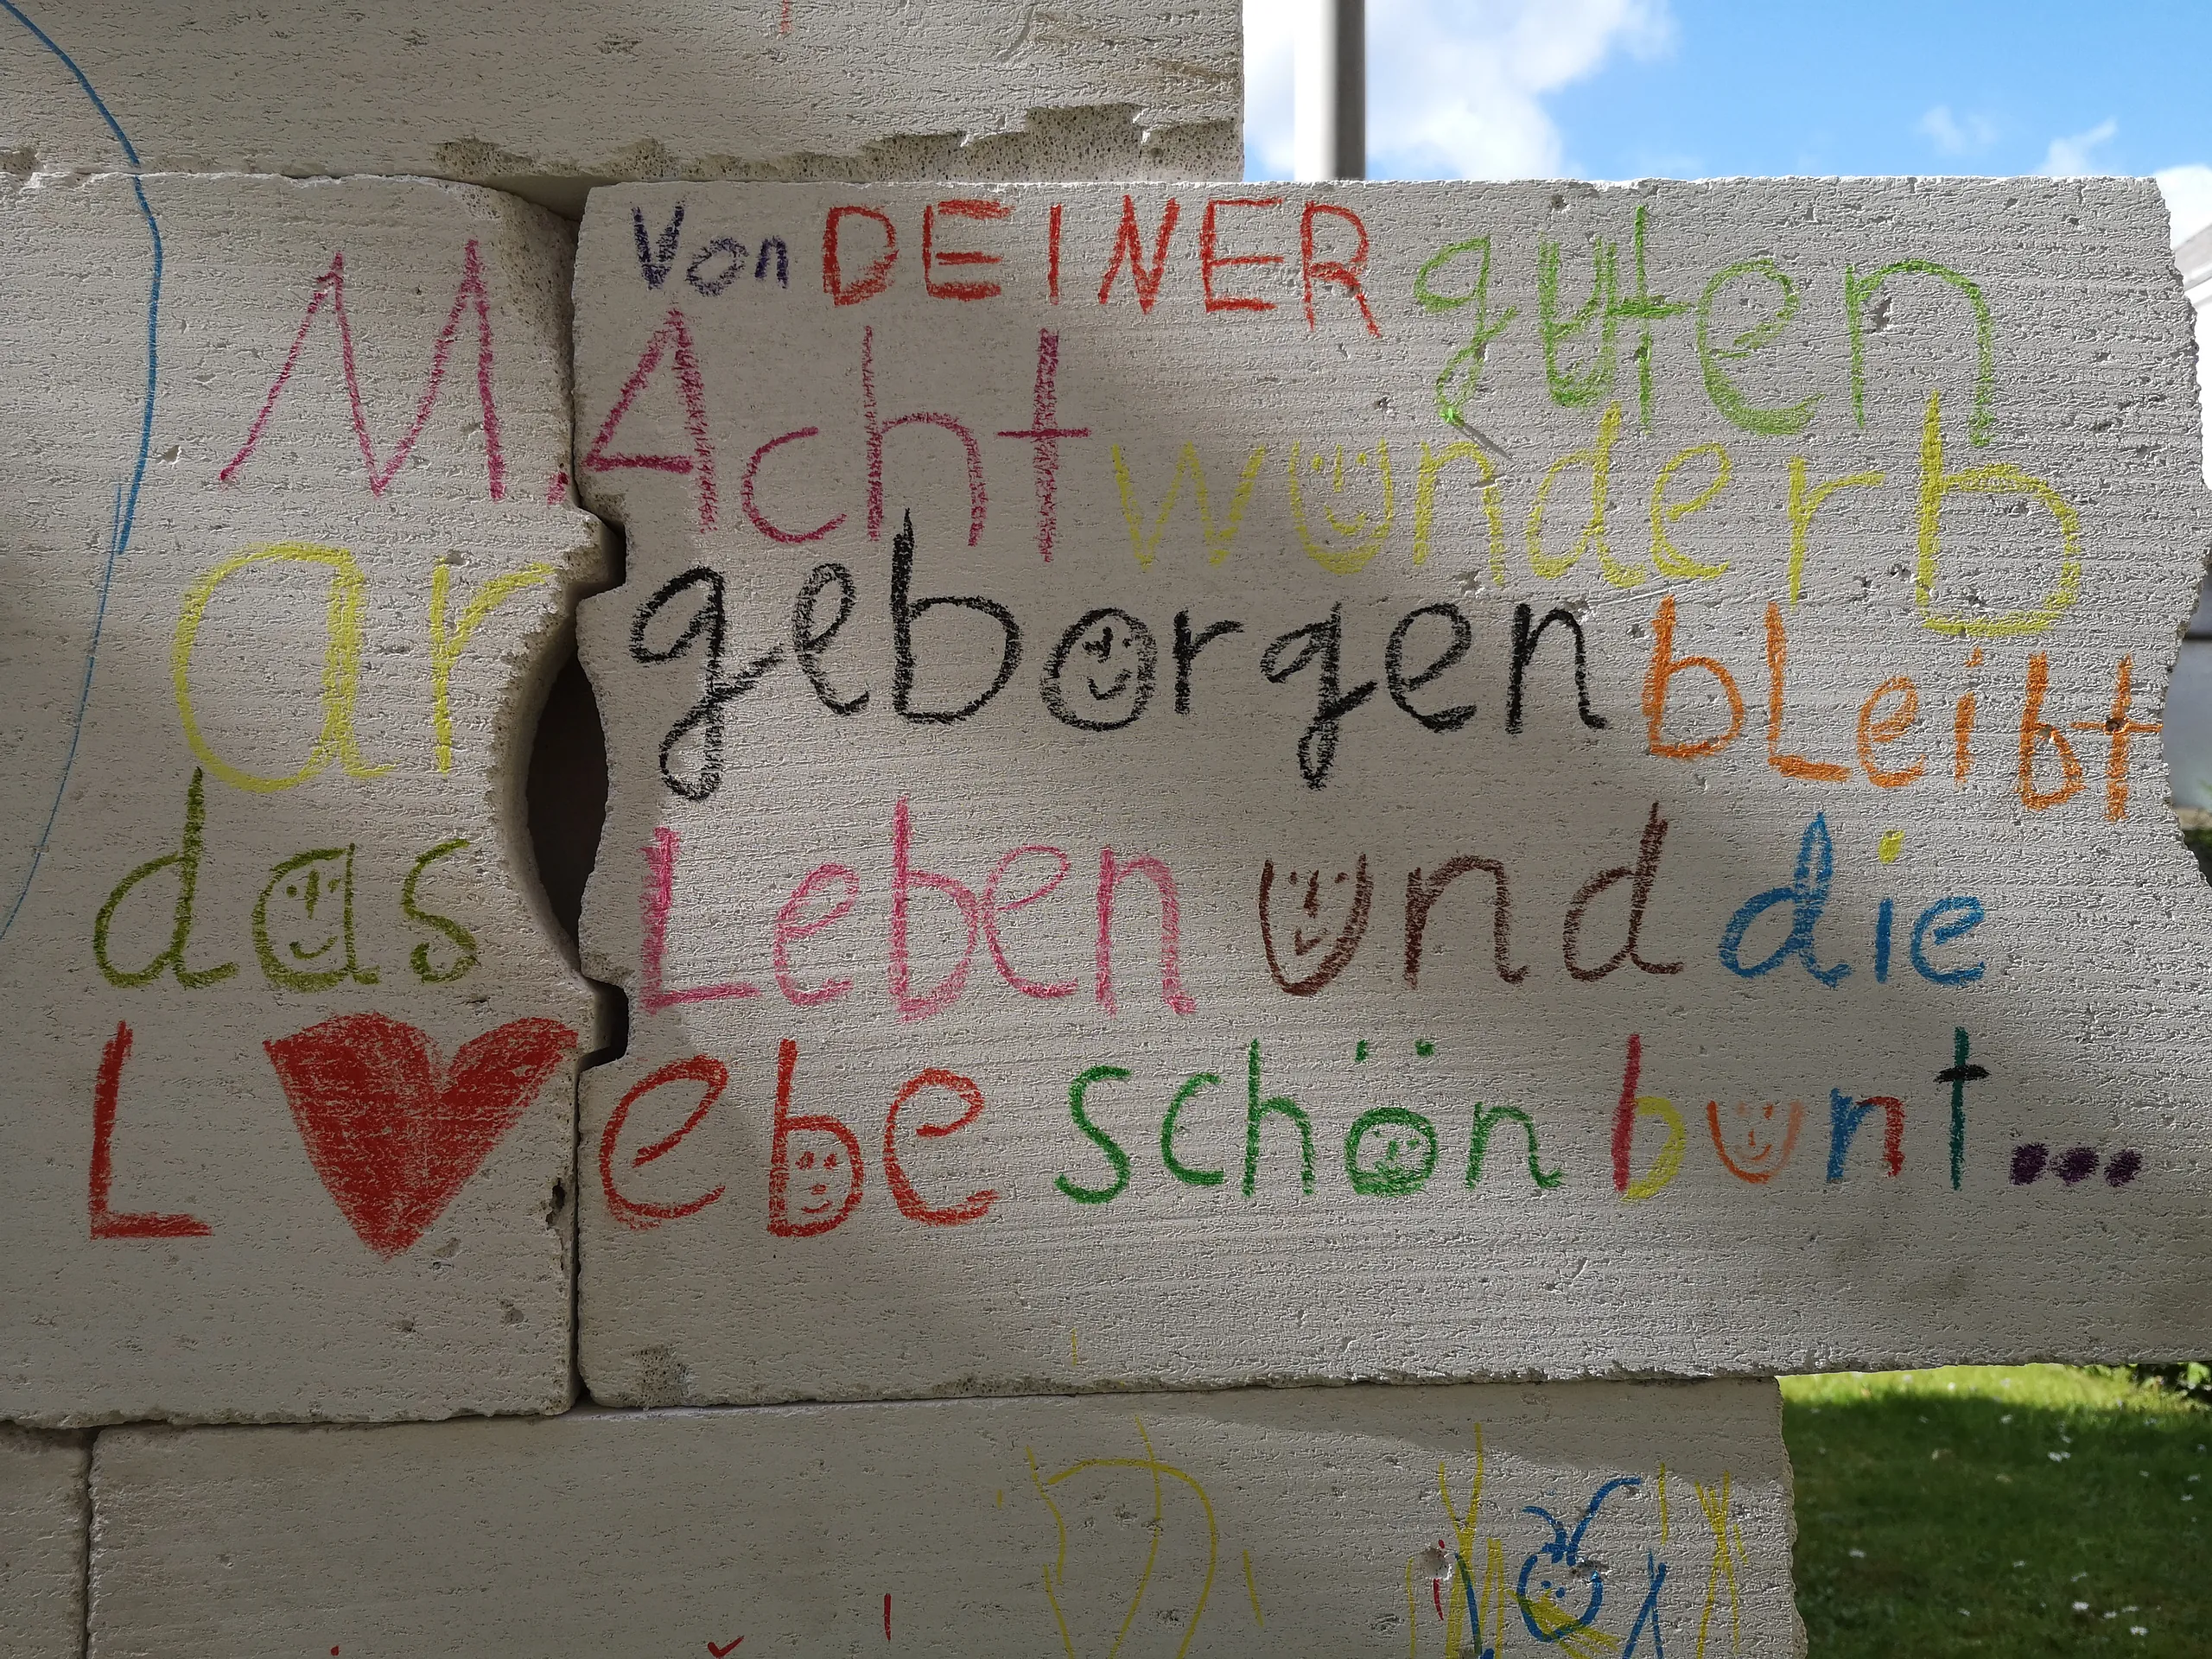 Von DEINER guten
MAcht wunderb
ar geborgen bLeibt
das Leben und die
L❤ebe schön bunt...